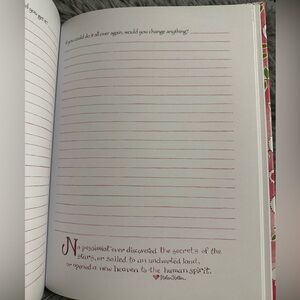 you get it?
If you could do it all over again, would you change anything?
No pessimist ever discovered the secrets of the
stars, or sailed to an uncharted land,
or opened a new heaven to the human spirit.
Helen Keller